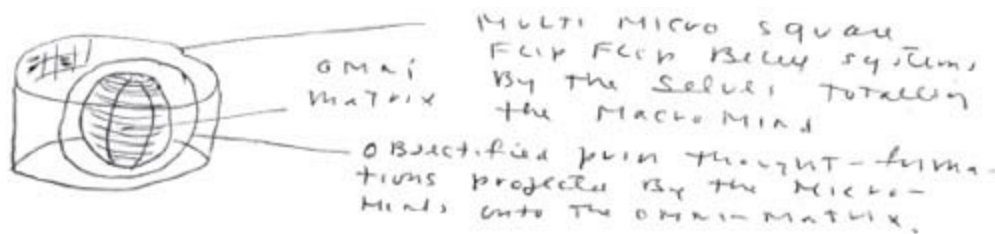 MULTI MICRO SQUARE
FLIP FLOP BELIEF SYSTEMS
BY THE SELVES TOTALLING
THE MACROMIND
OMNI
MATRIX
OBJECTIFIED PURE THOUGHT-FORMA-
TIONS PROJECTED BY THE MICRO-
MINDS ONTO THE OMNI-MATRIX.